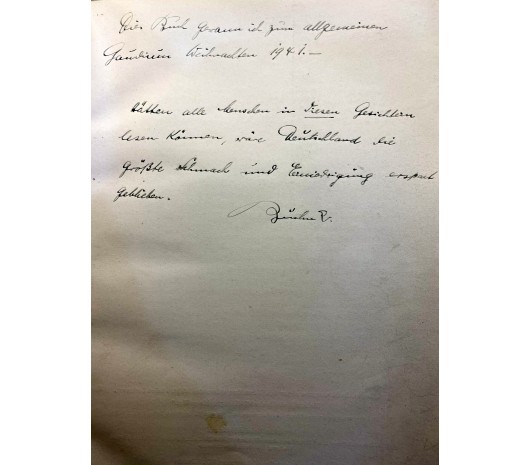 Dies Buch gewann ich zum allgemeinen
Gaudium Weihnachten 1941.—
Hätten alle Menschen in diesen Gesichtern
lesen können, wäre Deutschland die
größte Schmach und Erniedrigung erspart
geblieben.